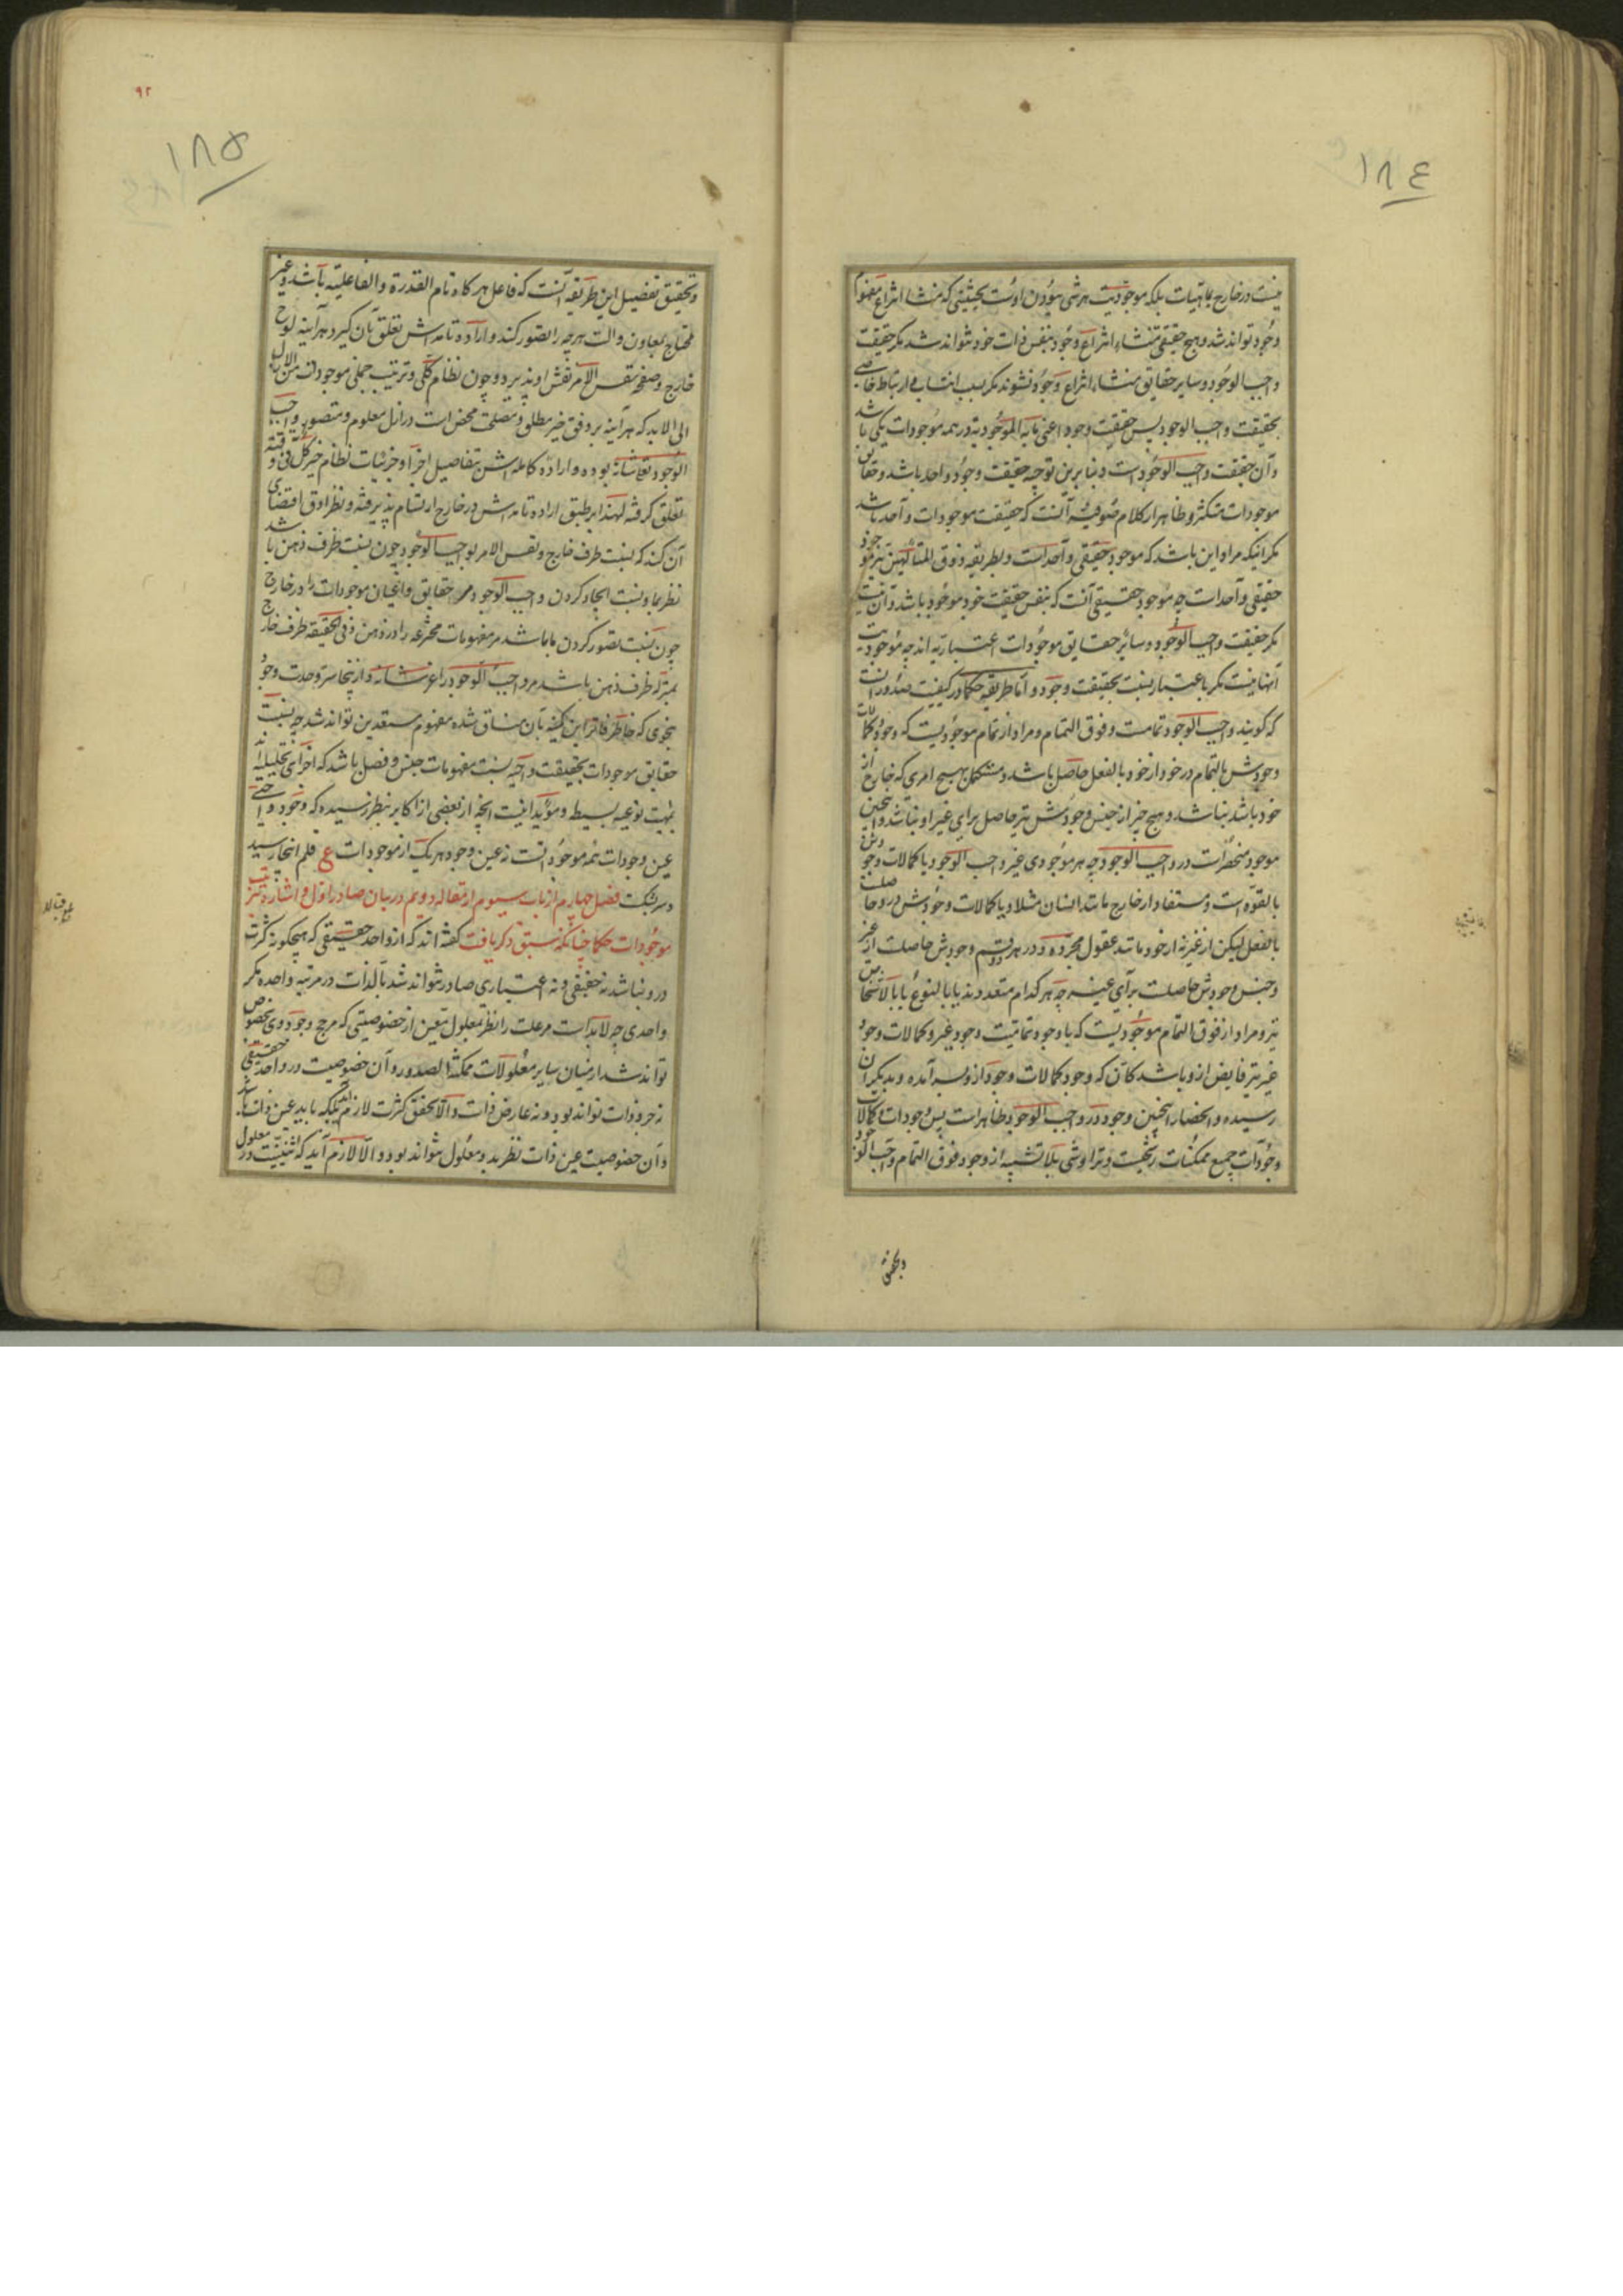 ١٨٤
نیست در خارج بماهیات بلکه موجودیت هر شی بودن اوست بحیثیتی که منشاء انتزاع مفهوم
وجود تواند شد و هیچ حقیقتی منشاء انتزاع وجود بنفس ذات خود نتواند شد مکر حقیقت
واجب الوجود و سایر حقایق منشاء انتزاع وجود نشوند مکر بسبب انتسابی و ارتباط خاصی
بحقیقت واجب الوجود پس حقیقت وجود اعنی ما به الموجودیة در همه موجودات یکی باشد
و آن حقیقت واجب الوجود است و بنابرین توجیه حقیقت وجود واحد باشد و حقایق
موجودات متکثر و ظاهر از کلام صوفیه آنست که حقیقت موجودات واحد باشد
مکر اینکه مراد این باشد که موجود حقیقی واحد است و بطریقه ذوق المتألهین نیز موجود
حقیقی واحد است چه موجود حقیقی آنست که بنفس حقیقت خود موجود باشد و آن نیست
مکر حقیقت واجب الوجود و سایر حقایق موجودات اعتباریه اند چه موجودیت
آنها نیست مکر باعتبار نسبت بحقیقت وجود و اما طریقه حکما در کیفیت صدور آنست
که کویند واجب الوجود تمامست و فوق التمام و مراد از تمام موجودیست که وجود و کمالات
وجودش بالتمام در خود از خود بالفعل حاصل باشد و مستکمل بهیچ امری که خارج از
خود باشد نباشد و هیچ چیز از جنس وجودش نیز حاصل برای غیر او نباشد و اینچنین
موجود منحصر است در واجب الوجود چه هر موجودی غیر واجب الوجود یا کمالات وجودش
بالقوه است و مستفاد از خارج مانند انسان مثلا و یا کمالات وجودش در و حاصلست
بالفعل لیکن از غیر نه از خود مانند عقول مجرده و در هر دو قسم وجودش حاصلست از غیر
و جنس وجودش حاصلست برای غیر چه هر کدام متعددند یا بالنوع یا بالاشخاص
نیز و مراد از فوق التمام موجودیست که با وجود تمامیت وجود غیر و کمالات وجود
غیر نیز فایض ازو باشد کأن که وجود کمالات وجود ازو بسر آمده و بدیکران
رسیده و انحصار اینچنین وجود در واجب الوجود ظاهر است پس وجودات و کمالات
وجودات جمیع ممکنات رشحیست و تراوشی بلا تشبیه از وجود فوق التمام واجب الوجود
و تحقیق
٩٢
١٨٥
و تحقیق تفصیل این طریقه آنست که فاعل هر کاه تام القدرة و الفاعلیة باشد و غیر
محتاج بمعاون و آلت هر چه را تصور کند و اراده تامه اش تعلق بآن کیرد هر آینه لوح
خارج و صفحه نفس الامر نقش او پذیرد و چون نظام کلی و ترتیب جملی موجودات من الازل
الی الابد که هر آینه بر وفق خیر مطلق و مصلحت محض است در ازل معلوم و متصور واجب
الوجود تعالی شانه بوده و اراده کامله اش بتفاصیل اجزا و جزئیات نظام خیر کل فی وقته
تعلق کرفته لهذا بر طبق اراده تامه اش در خارج ارتسام پذیرفته و نظر ادق اقتضای
آن کند که نسبت ظرف خارج و نفس الامر بواجب الوجود چون نسبت ظرف ذهن باشد
نظر بما و نسبت ایجاد کردن واجب الوجود مر حقایق و اعیان موجودات را در خارج
چون نسبت تصور کردن ما باشد مر مفهومات مخترعه را در ذهن و فی الحقیقه ظرف خارج
بمنزله ظرف ذهن باشد مر واجب الوجود را عز شانه و ازینجا سر وحدت وجود
بنحوی که خاطر فاتر این کمینه بآن منساق شده مفهوم مستعدین تواند شد چه نسبت
حقایق موجودات بحقیقت واجبیه نسبت مفهومات جنس و فصل باشد که اجزای تحلیلیه
مهیت نوعیه بسیط و مؤید اینست آنچه از بعضی از اکابر بنظر رسیده که وجود واجبی
عین وجودات همه موجود است نه عین وجود هر یک از موجودات ع قلم اینجا رسید
و سر بشکست فصل چهارم از باب سیوم از مقاله دویم در بیان صادر اول و اشاره بترتیب
موجودات حکما چنانکه سبق ذکر یافت کفته اند که از واحد حقیقی که هیچکونه کثرت
درو نباشد نه حقیقی و نه اعتباری صادر نتواند شد بالذات در مرتبه واحده مکر
واحدی چه لابد است مر علت را نظر بمعلول معین از خصوصیتی که مرجح وجود وی بخصوص
تواند شد از میان سایر معلولات ممکنة الصدور و آن خصوصیت در واحد حقیقی
نه جزو ذات تواند بود و نه عارض ذات و الا تحقق کثرت لازم آید بلکه باید عین ذات باشد
و آن خصوصیت عین ذات نظر بدو معلول نتواند بود و الا لازم آید که اثنینیت در معلول